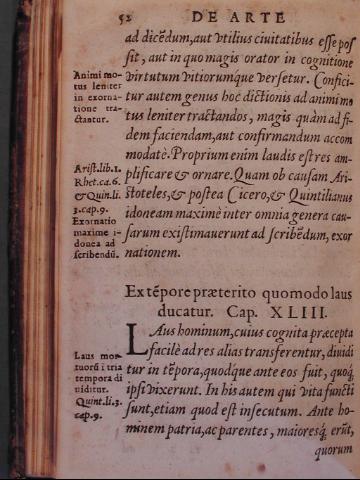 52 DE ARTE
ad dicẽdum, aut vtilius ciuitatibus esse pos
sit, aut in quo magis orator in cognitione
virtutum vitiorumque versetur. Confici-
tur autem genus hoc dictionis ad animi mo
tus leniter tractandos, magis quàm ad fi-
dem faciendam, aut confirmandum accom
modatè. Proprium enim laudis est res am-
plificare & ornare. Quam ob causam Ari-
stoteles, & postea Cicero, & Quintilianus
idoneam maximè inter omnia genera cau-
sarum existimauerunt ad scribẽdum, exor
nationem.
Animi mo-
tus leniter
in exorna-
tione tra-
ctantur.
Arist. lib. 1.
Rhet. ca. 6.
& Quin. li.
3. cap. 9.
Exornatio
maxime i-
donea ad
scribendũ.
Ex tẽpore præterito quomodo laus
ducatur. Cap. XLIII.
LAus hominum, cuius cognita præcepta
facilè ad res alias transferentur, diuidi
tur in tẽpora, quodque ante eos fuit, quoq́;
ipsi vixerunt. In his autem qui vita functi
sunt, etiam quod est insecutum. Ante ho-
minem patria, ac parentes, maioresq́; erũt,
quorum
Laus mor-
tuorũ i tria
tempora di
uiditur.
Quint. li. 3.
cap. 9.